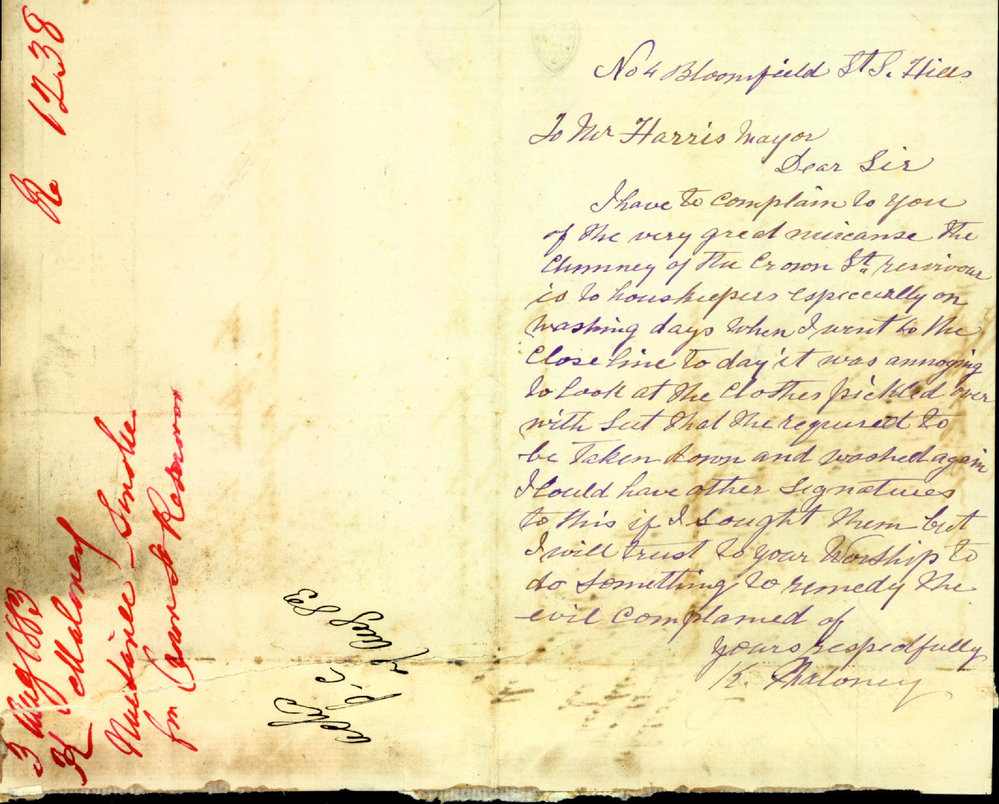 No 4 Bloomfield St S. Hills
To Mr Harris Mayor
Dear Sir
I have to complain to you
of the very great nuicanse the
Chimney of the Crown St resivour
is to houskeepers especially on
washing days when I went to the
Close line to day it was annoying
to look at the Clothes pickled over
with Sut that the required to
be taken down and washed again
I Could have other Signatures
to this if I Sought them but
I will trust to your Worship to
do Something to remedy the
evil Complained of
yours respectfully
K. Maloney
R 1238
3 Aug 1883
K Maloney
Nuisance - Smoke
fm Crown St Reservoir
P.C.
Aug 83